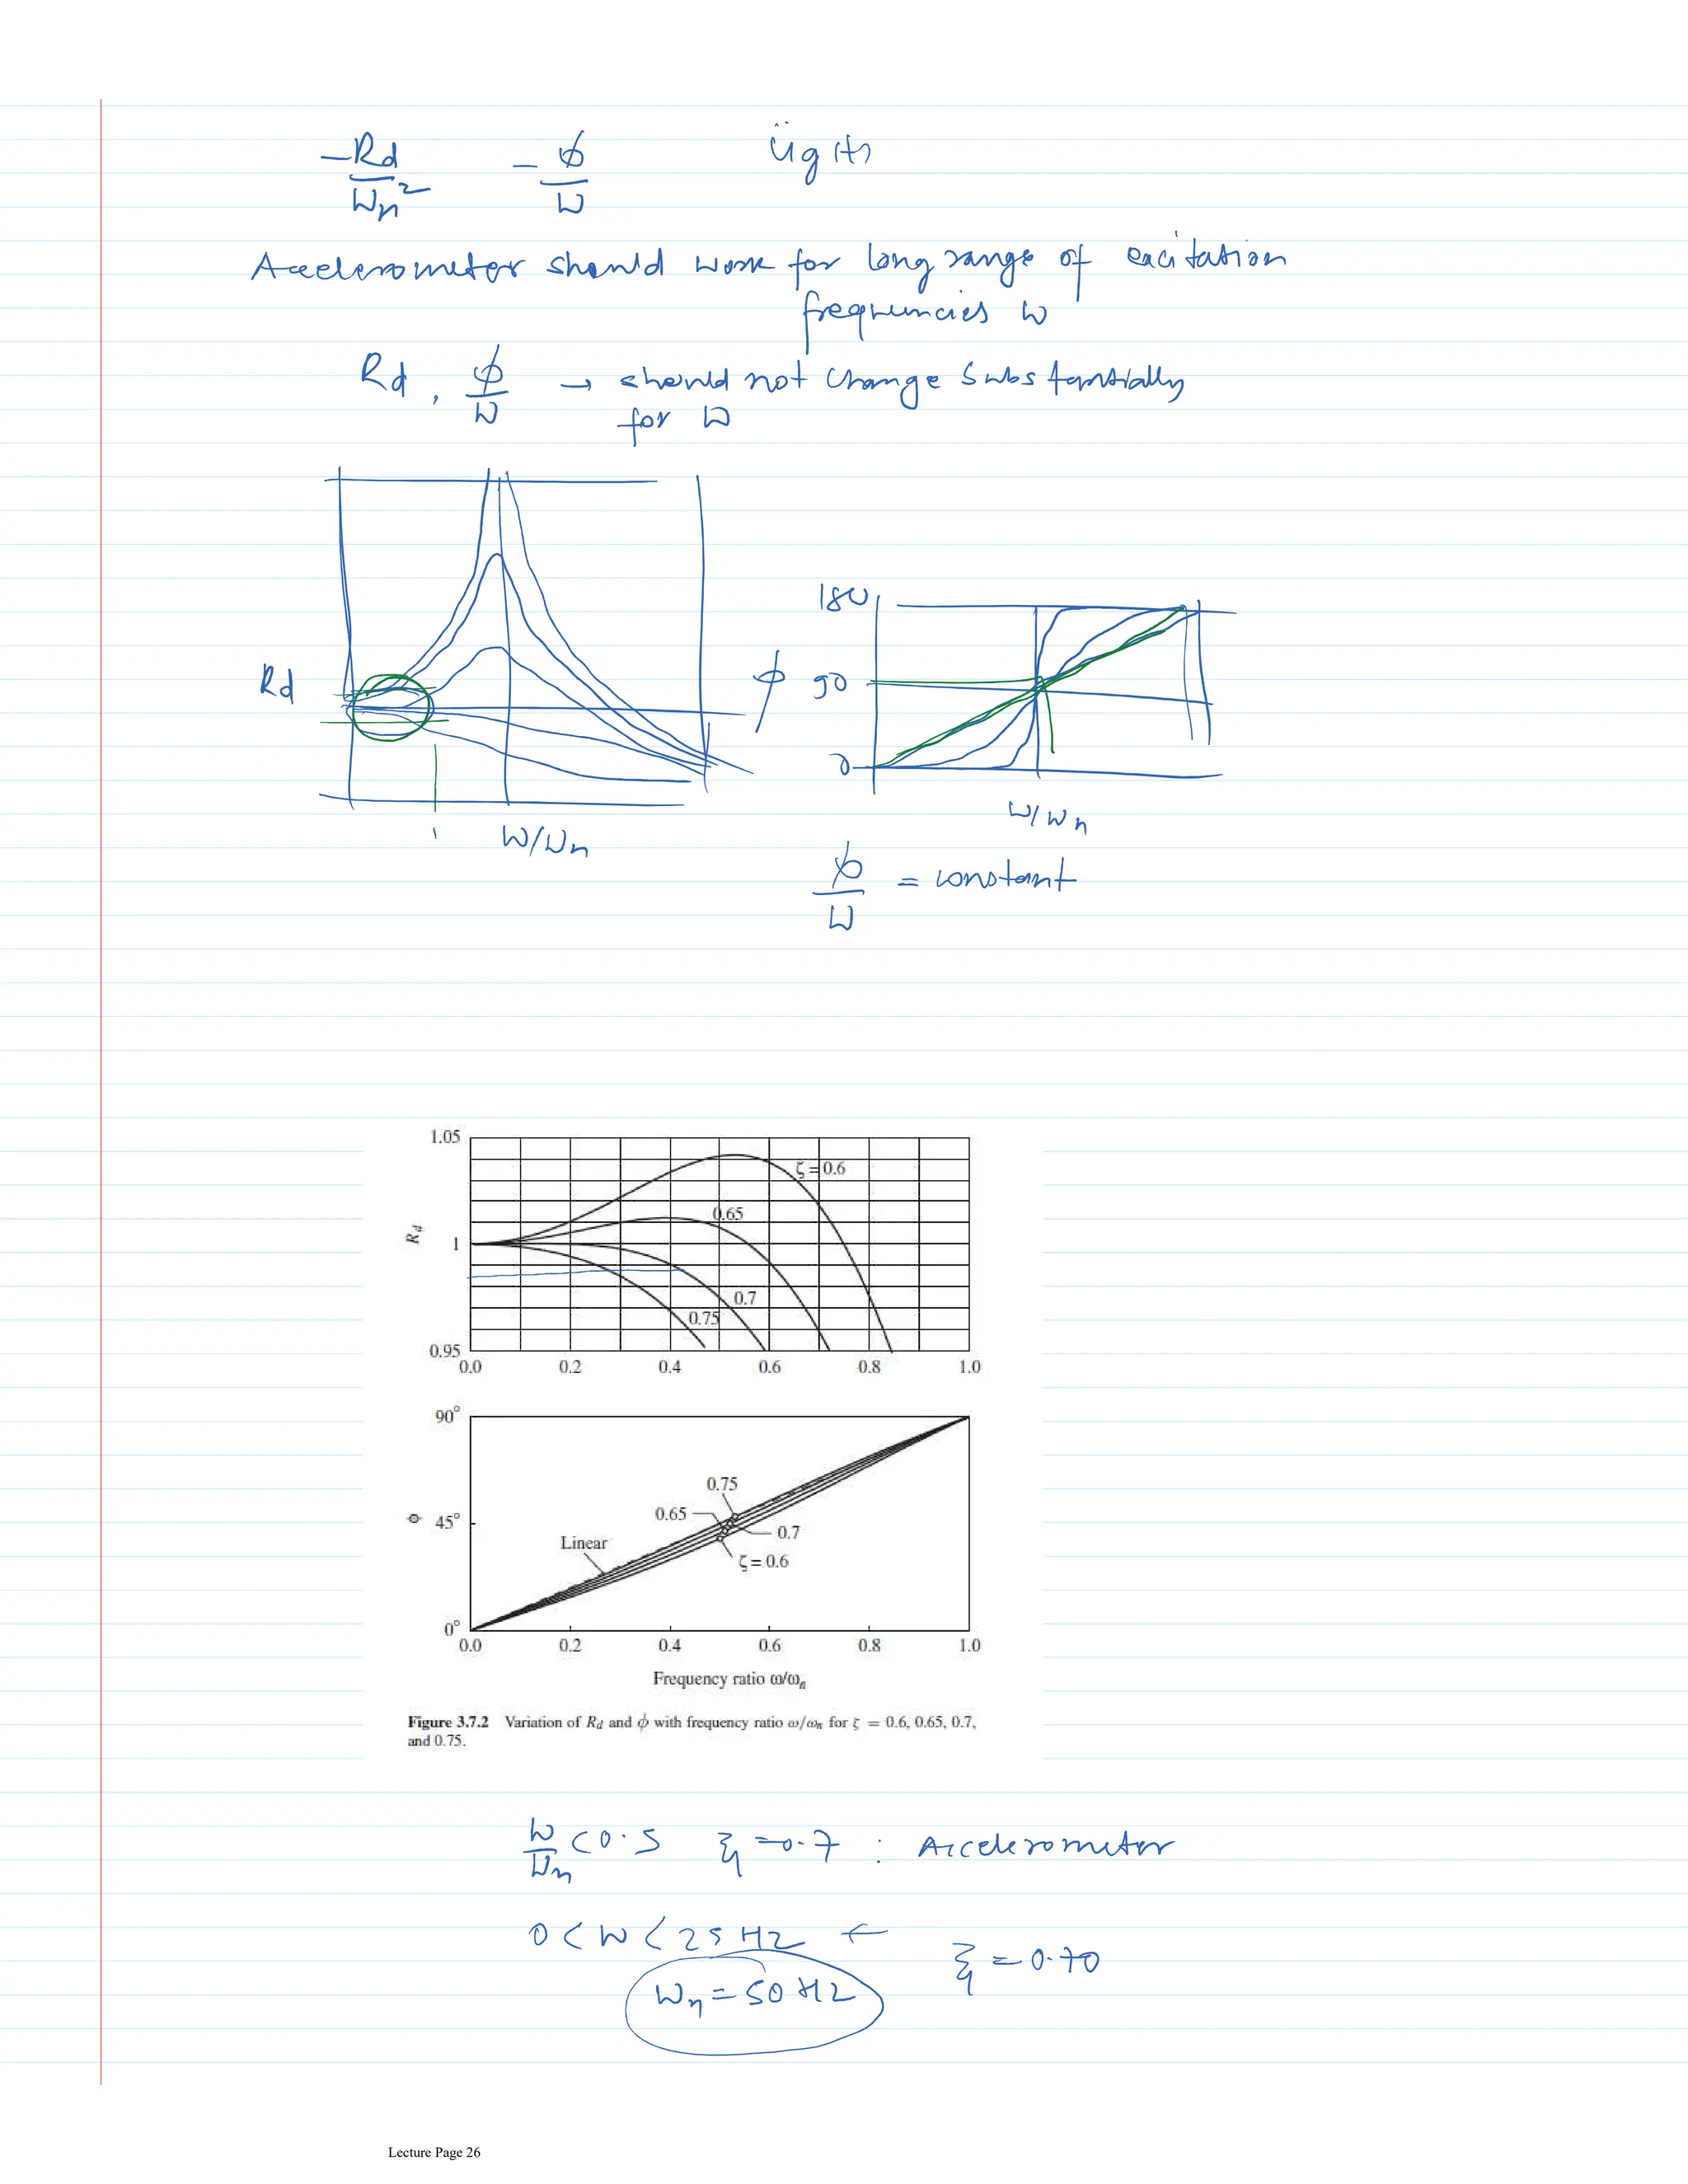 -Rd/ωn² -ϕ/ω üg(t)
Accelerometer should work for long range of excitation
frequencies ω
Rd, ϕ/ω → should not change substantially
for ω
180
Rd
ϕ 90
0
ω/ωn
ω/ωn
ϕ/ω = constant
1.05
ζ = 0.6
0.65
Rd
1
0.7
0.75
0.95
0.0 0.2 0.4 0.6 0.8 1.0
90°
0.75
0.65
ϕ 45°
0.7
Linear
ζ = 0.6
0°
0.0 0.2 0.4 0.6 0.8 1.0
Frequency ratio ω/ωn
Figure 3.7.2 Variation of Rd and ϕ with frequency ratio ω/ωn for ζ = 0.6, 0.65, 0.7,
and 0.75.
ω/ωn < 0.5 ξ = 0.7 : Accelerometer
0 < ω < 25 Hz ←
ξ = 0.70
ωn = 50 Hz
Lecture Page 26